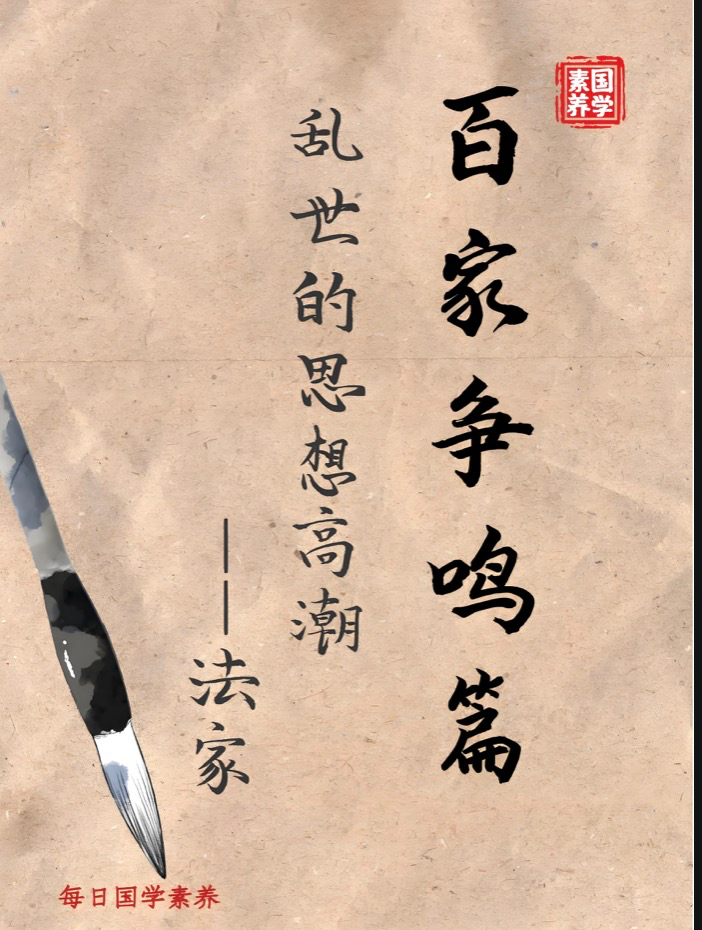 国学
素养
百家争鸣篇
乱世的思想高潮
——法家
每日国学素养